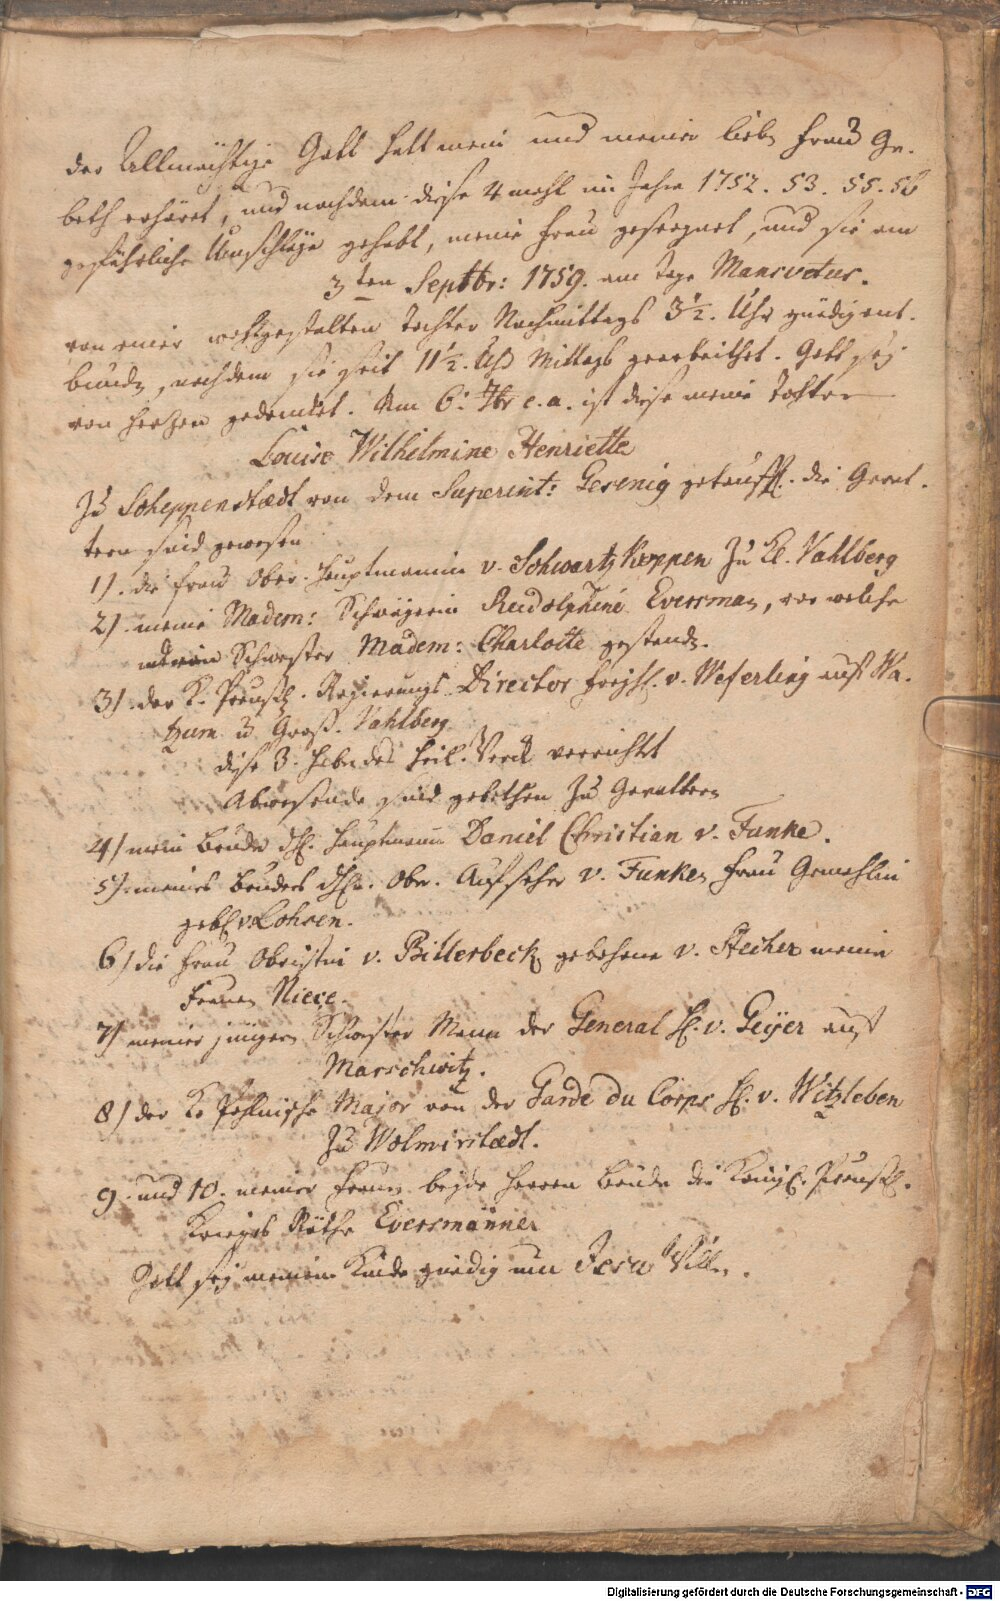 der Allmächtige Gott hatt mein und meiner lieben Frau Ge-
beth erhöret, und nachdem diese 4 mahl im Jahre 1752. 53. 55. 56
gefährliche Umschläge gehabt, meine Frau gesegnet, und sie am
3ten Septbr: 1759. am Tage Mansvetus.
von einer wohlgestalten Tochter Nachmittags 3½. Uhr gnädig ent-
bunden, nachdem sie seit 11½. Uhr Mittags gearbeithet. Gott sey
von Herzen gedancket. Am 6. 7br e. a. ist diese meine Tochter
Louise Wilhelmine Henriette
Zu Scheppenstædt von dem Superint: Gesenig getaufft. die Gevat-
tern sind gewesen
1). die Frau Ober-Hauptmannin v. Schwartzkoppen Zu Kl. Vahlberg
2). meine Madem: Schwägerin Rudolphine Eversman, vor welche
Schwester Madem: Charlotte gestanden.
3). der K. Preuß. Regierungs-Director Freyh. v. Weferling auf Wa-
tzum u Groß. Vahlberg
diese 3. haben das heil. Werck verrichtet
Abwesende sind gebethen Zu Gevattern
4) mein Bruder der H. Hauptmann Daniel Christian v. Funke.
5). meines Bruders des H. Ober-Aufseher v. Funken Frau Gemahlin
geb. v. Lohsen.
6) die Frau Obristin v. Bitterbeck gebohrne v. Stecher meiner
Frauen Niece.
7) meiner jüngern Schwester Mann der General H. v. Geÿer auf
Marschwitz.
8) der K. Pohlnische Major von der Garde du Corps H. v. Witzleben
Zu Wolmirstædt.
9. und 10. meiner Frauen beyde Herren Brüder die Königl. Preuß.
Krieges Räthe Eversmänner
Gott sey meinem Kinde gnädig um Jesu Willen.